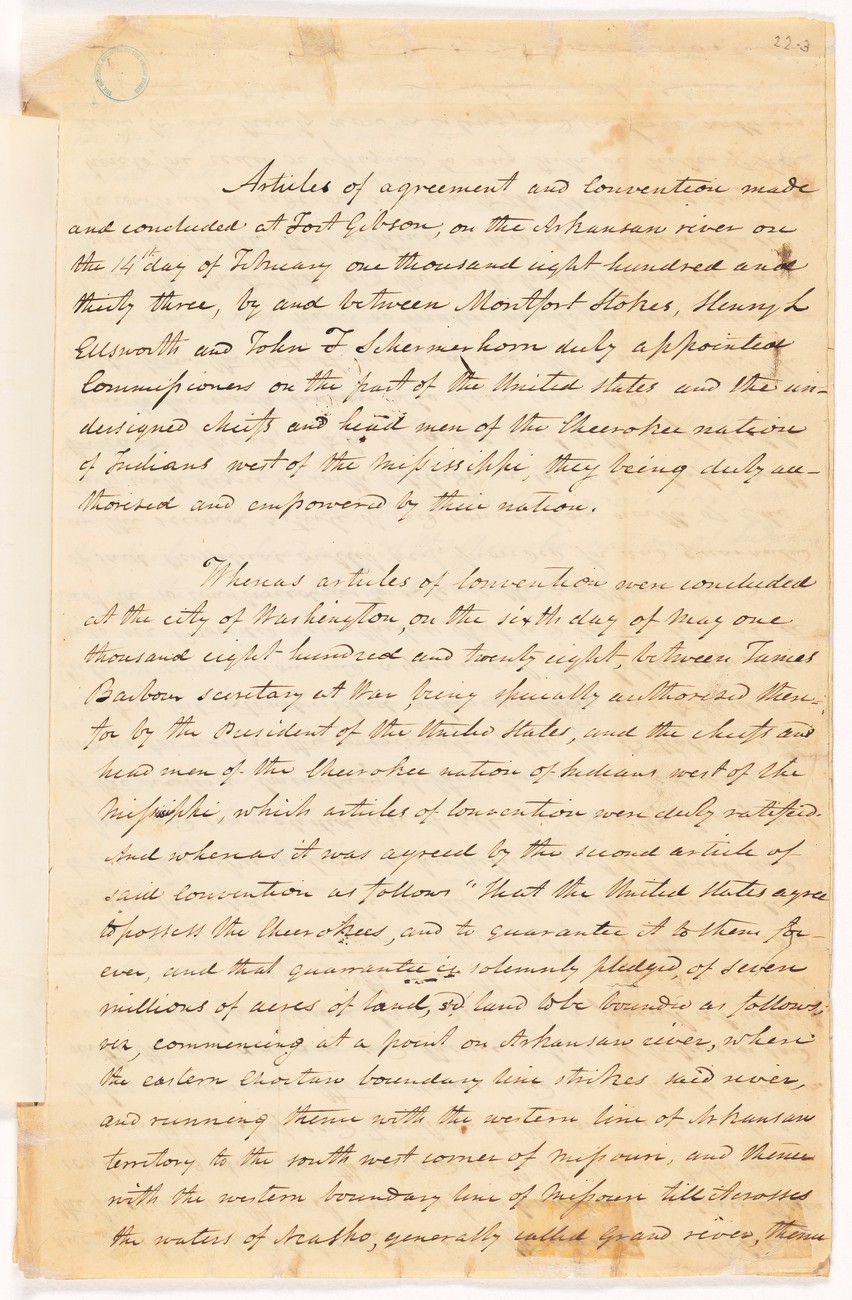 22-3
Articles of agreement and Convention made
and concluded at Fort Gibson, on the Arkansaw river on
the 14th day of February one thousand eight hundred and
thirty three, by and between Montfort Stokes, Henry L
Ellsworth and John F Schermerhorn duly appointed
Commissioners on the part of the United States and the un-
dersigned chiefs and head men of the Cherokee nation
of Indians west of the Mississippi, they being duly au-
thorised and empowered by their nation.
Whereas articles of Convention were concluded
at the city of Washington, on the sixth day of May one
thousand eight hundred and twenty eight, between James
Barbour secretary at War, being specially authorised there-
for by the President of the United States, and the chiefs and
head men of the Cheerokee nation of Indians west of the
Missisippi, which articles of convention were duly ratified.
And whereas it was agreed by the second article of
said Convention as follows "That the United States agree
to possess the Cheerokees, and to guarantee it to them for-
ever, and that guarrantee is solemnly pledged, of seven
millions of acres of land, sd land to be bounded as follows;
viz, commencing at a point on Arkansaw river, where
the eastern Choctaw boundary line strikes said river,
and running thence with the western line of Arkansaw
territory to the south west corner of Missouri, and thence
with the western boundary line of Missouri till it crosses
the waters of Neasho, generally called Grand river, thence